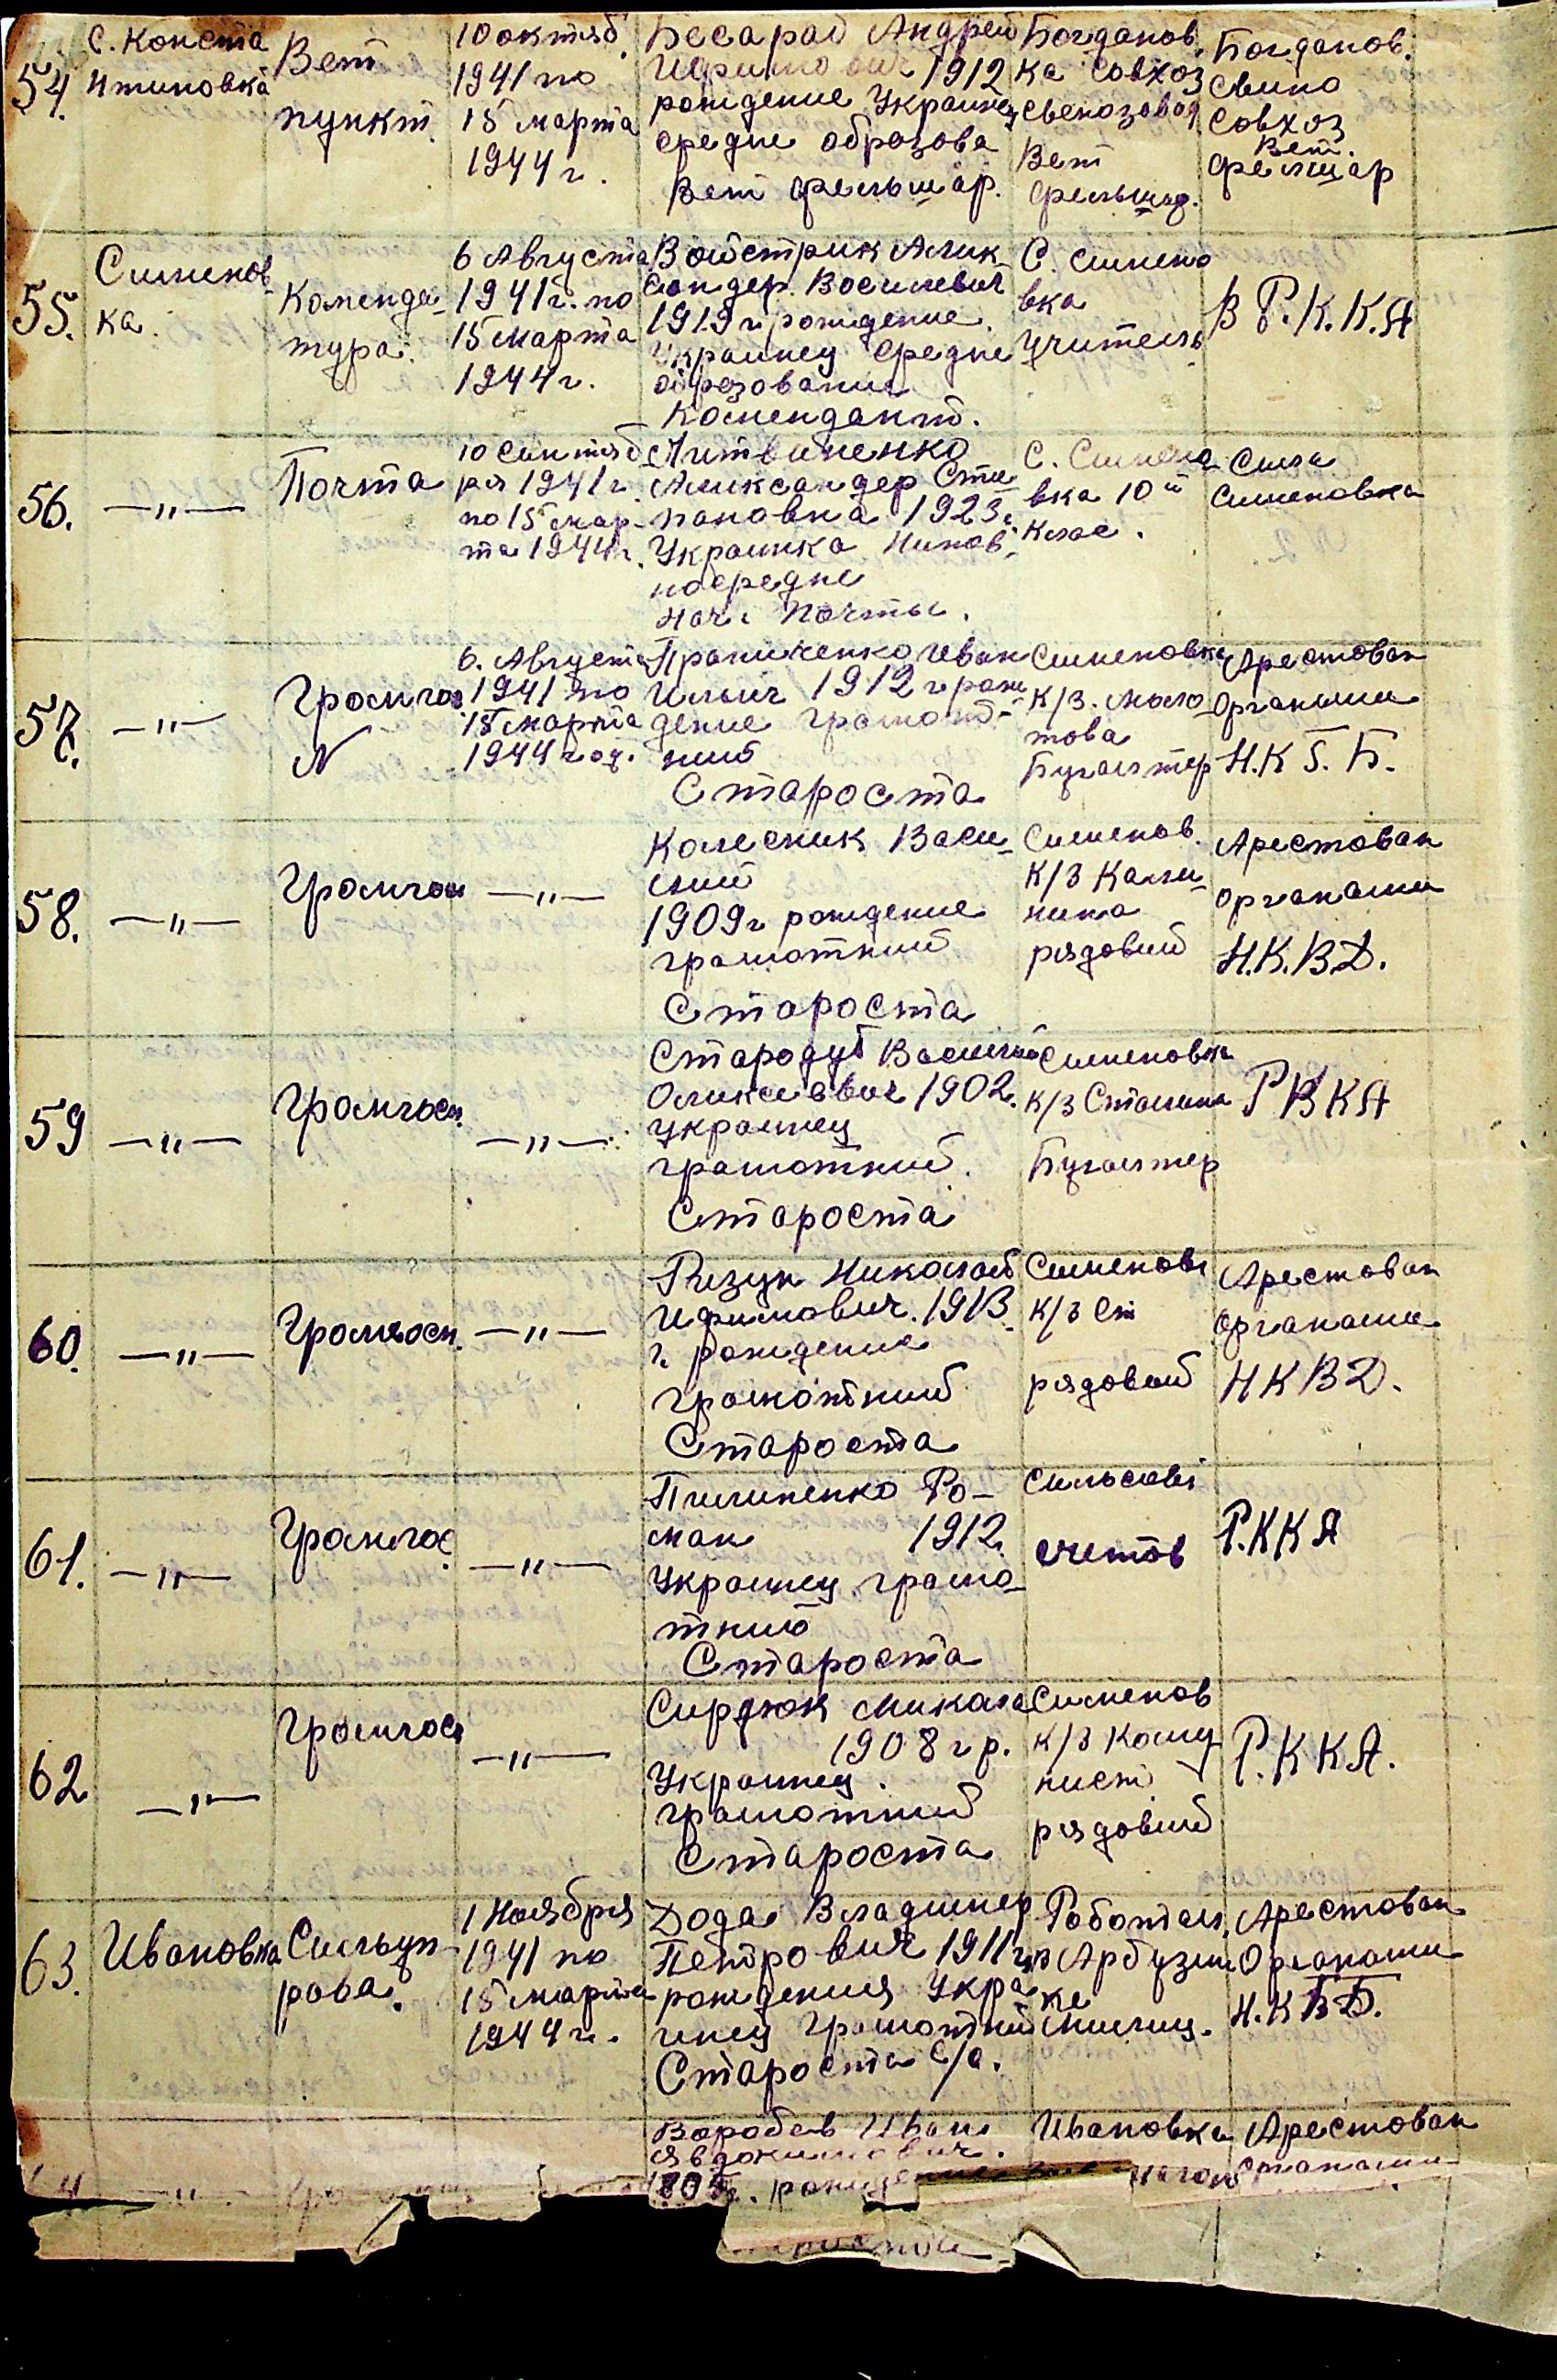 54.
С. Конста
нтиновка
Вет
пункт.
10 октяб
1941 по
15 марта
1944 г.
Бесараб Андрей
1912
рождение Украинец
средне образова
Вет фельшар.
Богданов.
ка Совхоз
Вет
фельшар.
Богданов.
Свино
Совхоз
Вет.
фелшар
55.
Сименов
ка.
Коменда-
тура.
6 Августа
1941 г. по
15 марта
1944 г.
Войстрик Алик-
сандер. Восилевич
1919 г рождение.
Украинец Средне
образование
Комендант.
С. Симено
вка
Учитель
В Р.К.К.А
56.
—„—
Почта
10 Синтяб
ря 1941 г.
по 15 мар-
та 1944 г.
Литвиненко
Аликсандер Сти-
пановна 1923 г.
Украинка Нипов-
носредне
Нач. Почты.
С. Симено
вка 10й
Клас.
Сила
Сименовка
57.
—„—
Громгос
N
6. Августа
1941 по
15 марта
1944 год.
Иван
Ильич 1912 г рож-
дение Грамот-
ний
Староста
Сименовка
К/З. Моло-
това
Бугалтер
Арестован
Органами
Н.К Г. Б.
58.
—„—
Громгос
—„—
Колесник Васи-
лий
1909 г рождение
грамотний
Староста
Сименов.
К/З Кали-
нина
рядовий
Арестован
органами
Н.К.В.Д.
59
—„—
Громгосп.
—„—
Стародуб Василий
Оликсеввич 1902.
Украинец
грамотний.
Староста
Сименовка
К/З Сталина
Бугалтер
Р К К А
60.
—„—
Громгосп.
—„—
Ризун Николай
Ифимович. 1913
г. рождение
грамотний
Староста
Сименов
К/З Ст
рядовой
Арестован
органами
Н К В Д.
61.
—„—
Громгос.
—„—
Пилипенко Ро-
ман 1912.
Украинец грамо-
тний
Староста
Сильсові
счетов
Р.К К А
62
—„—
Громгосп
—„—
Сирдюк Микола
1908 г р.
Украинец.
грамотний
Староста
Сименов
К/З Кому
нист
рядовий
Р. К К А.
63.
Ивановка
Сильуп-
рова.
1 Ноября
1941 по
15 марта
1944 г.
Дода Владимер
Петрович 1911 г.
рождения Укра
инец Грамотний
Староста с/а.
Работал.
в Арбузин
ке
Милиц.
Арестован
Органами
Н.К В Д.
—„—
Иван
рождение
Ивановка
Арестован
Органами